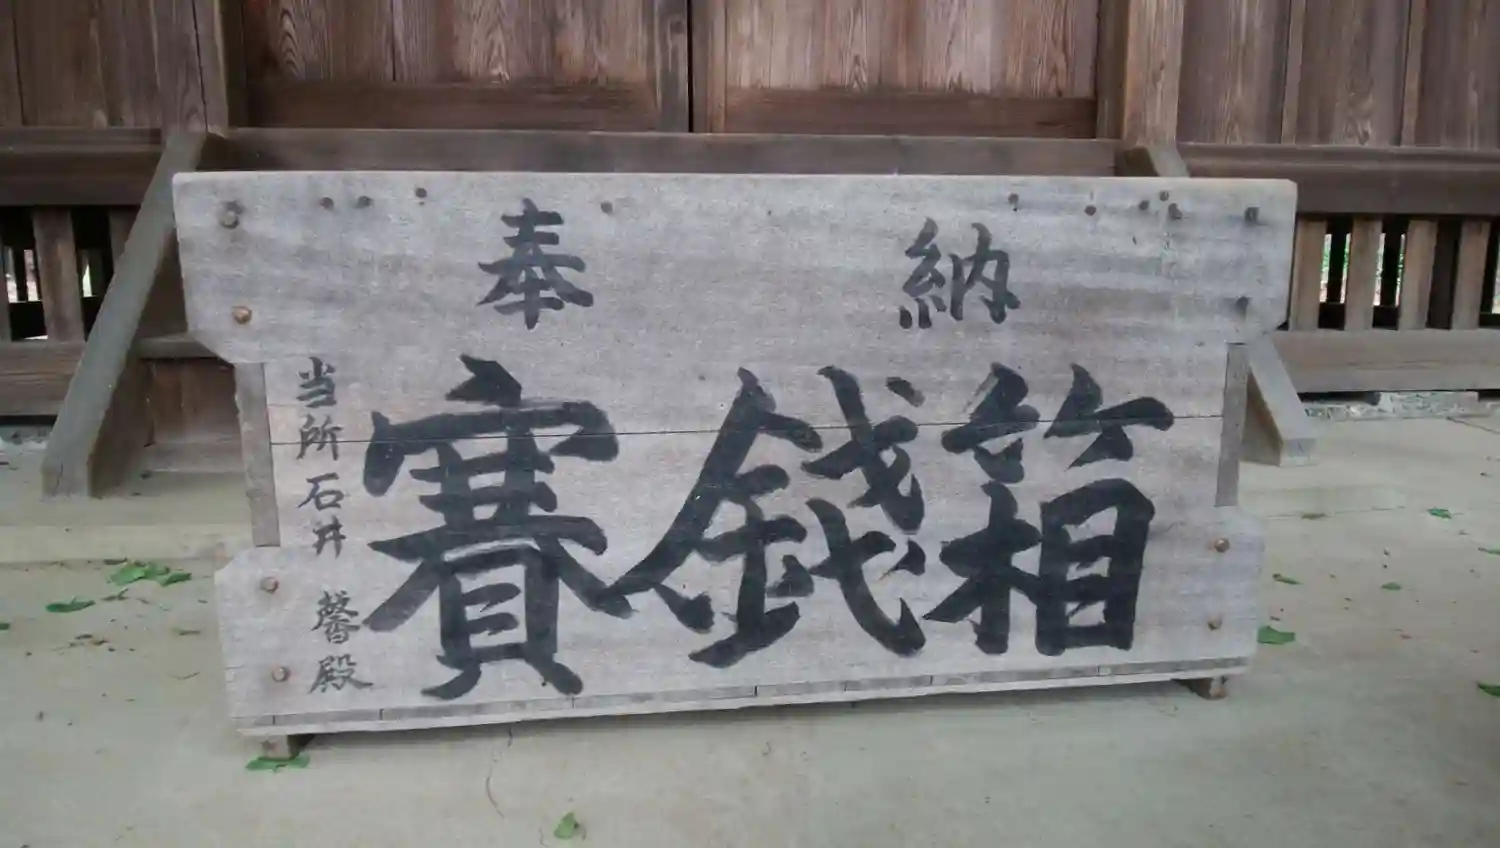 奉納
賽銭箱
当所石井馨殿